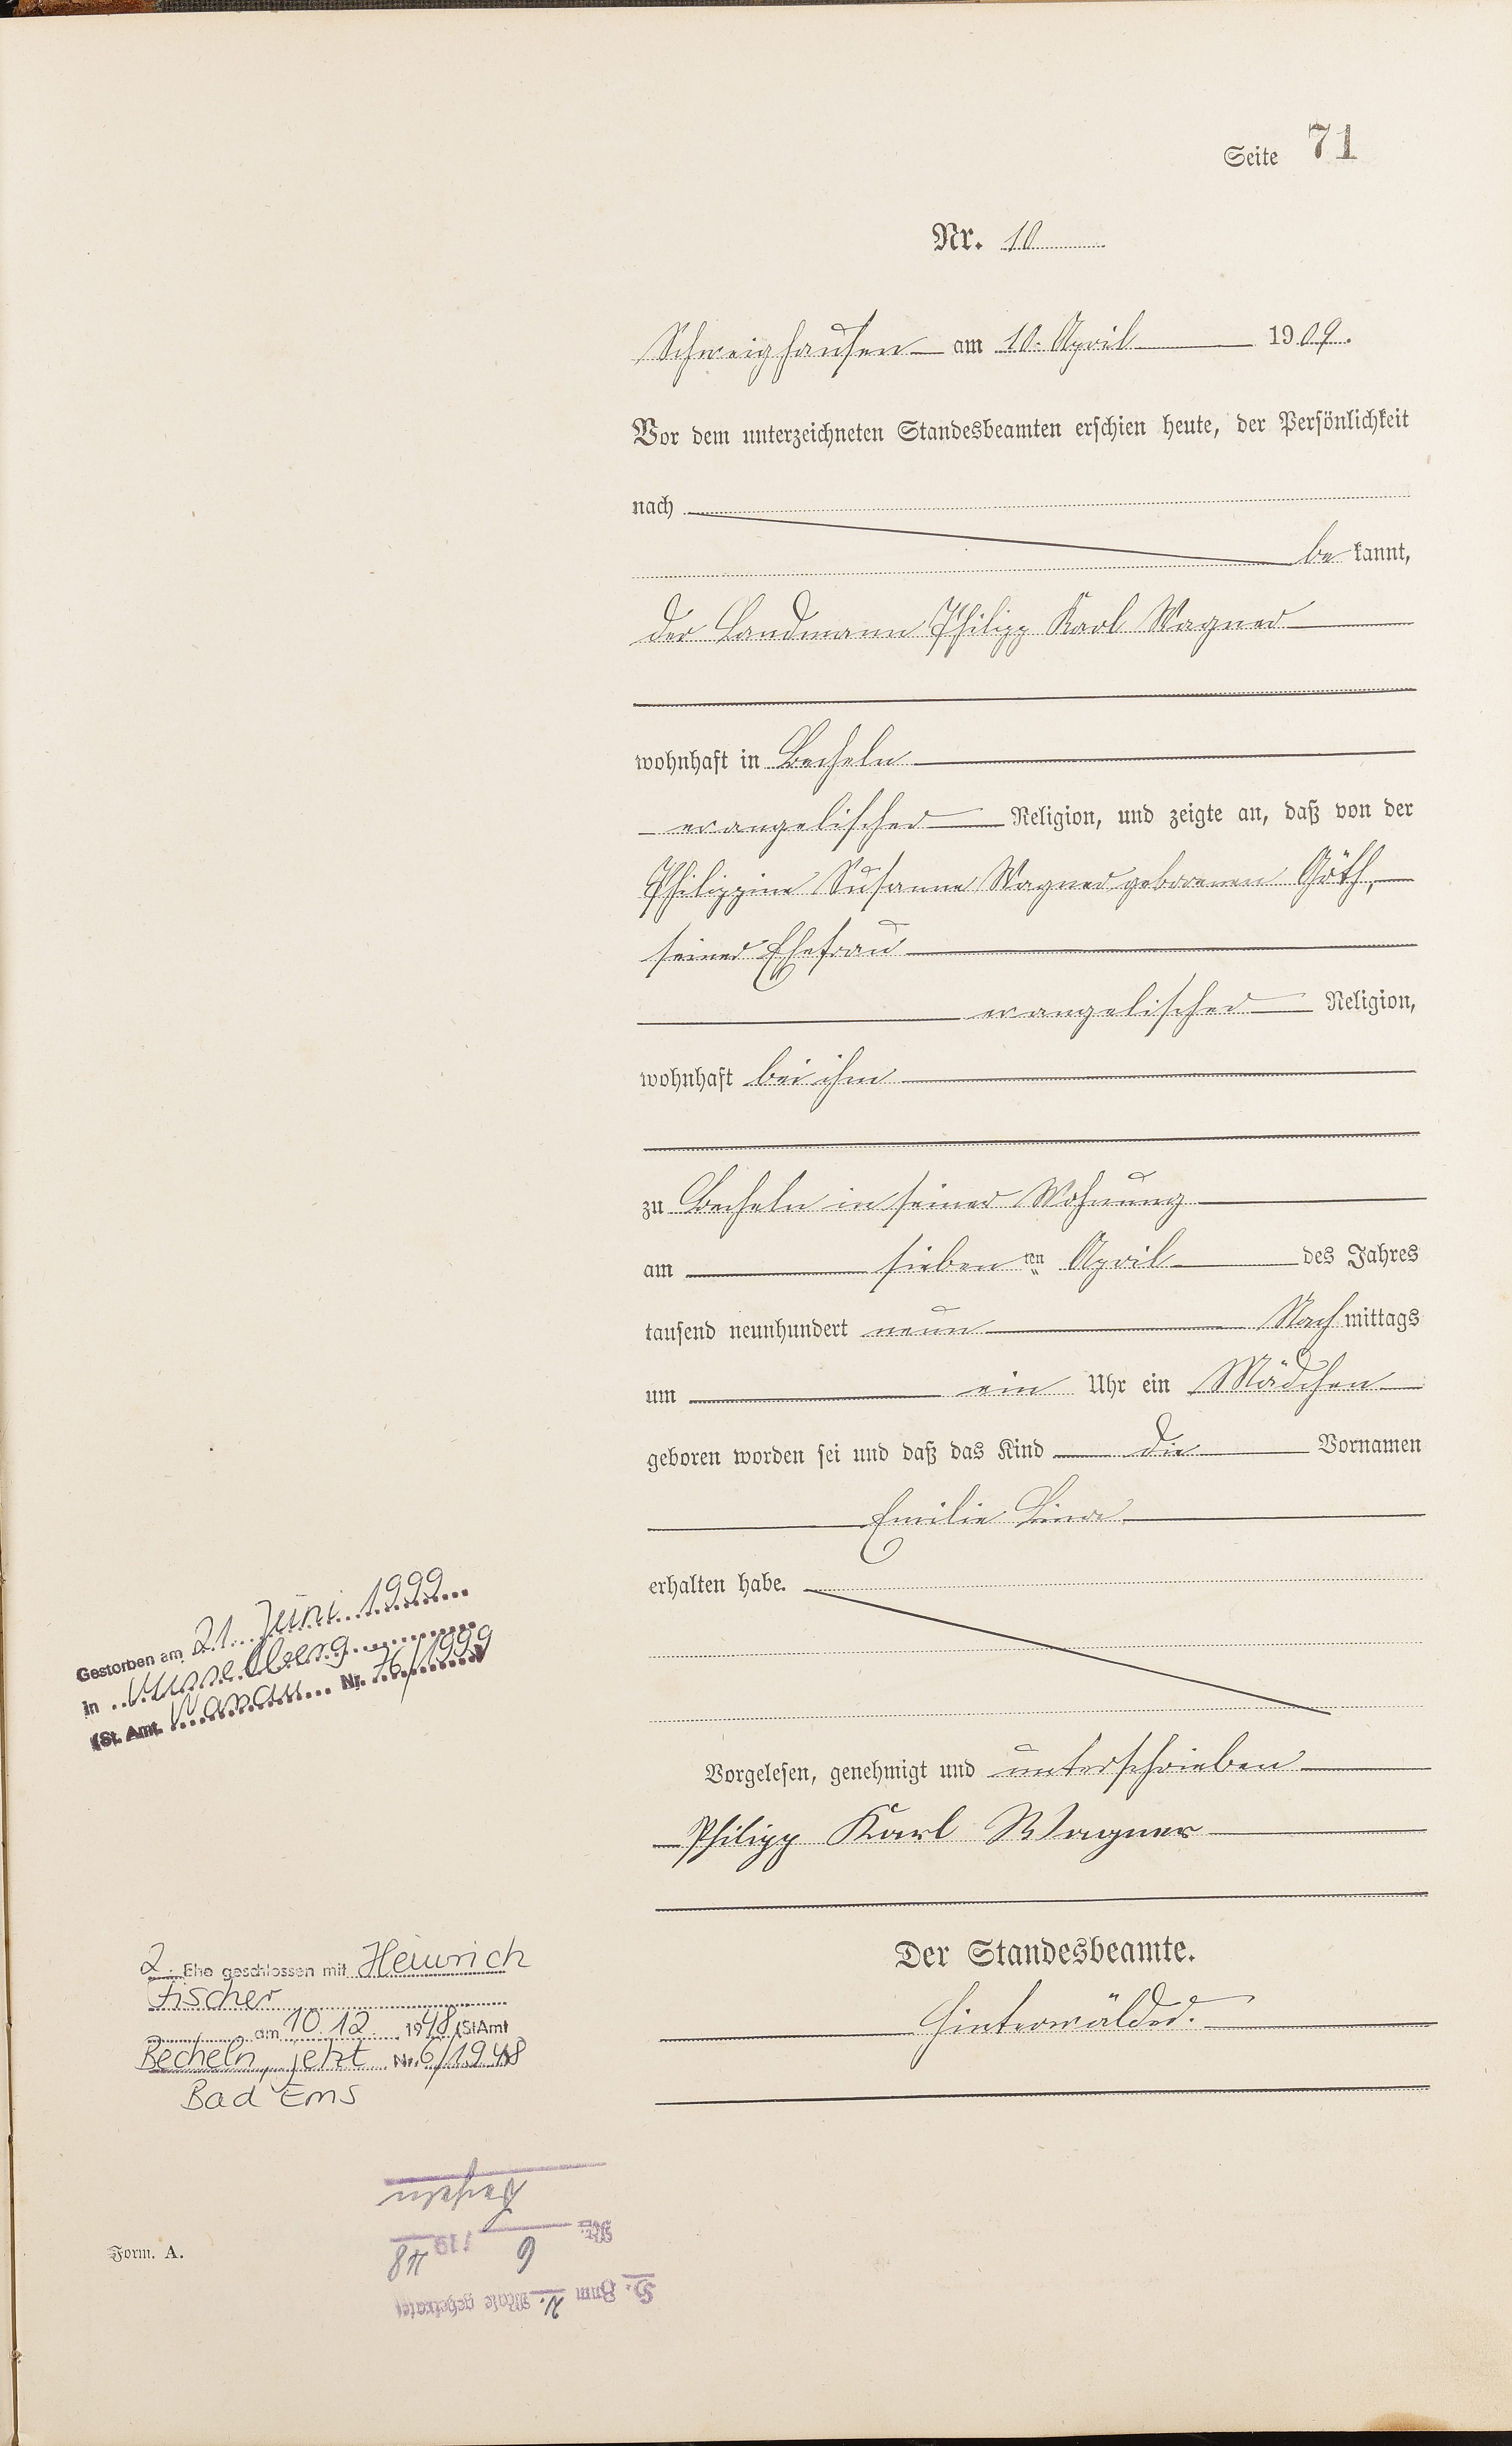 Seite 71
Nr. 10
Schweighausen am 10. April 1909.
Vor dem unterzeichneten Standesbeamten erschien heute, der Persönlichkeit
nach
be kannt,
der Landmann Philipp Karl Wagner
wohnhaft in Becheln
evangelischer Religion, und zeigte an, daß von der
Philippine Susanne Wagner geborenen Göth,
seiner Ehefrau
evangelischer Religion,
wohnhaft bei ihm
zu Becheln in seiner Wohnung
am sieben ten April des Jahres
tausend neunhundert neun Nach mittags
um ein Uhr ein Mädchen
geboren worden sei und daß das Kind die Vornamen
Emilie Lina
erhalten habe.
Vorgelesen, genehmigt und unterschrieben
Philipp Karl Wagner
Der Standesbeamte.
Hinterwälder.
Gestorben am 21. Juni 1999
in
(St. Amt. Nr. 76/1999
2. Ehe geschlossen mit Heinrich
Fischer
am 10.12. 1948 (StAmt
Becheln, jetzt Nr. 6/1948)
Bad Ems
H. Zum 2. Male geheiratet
Nr. 6 /19 48
Becheln
Form. A.